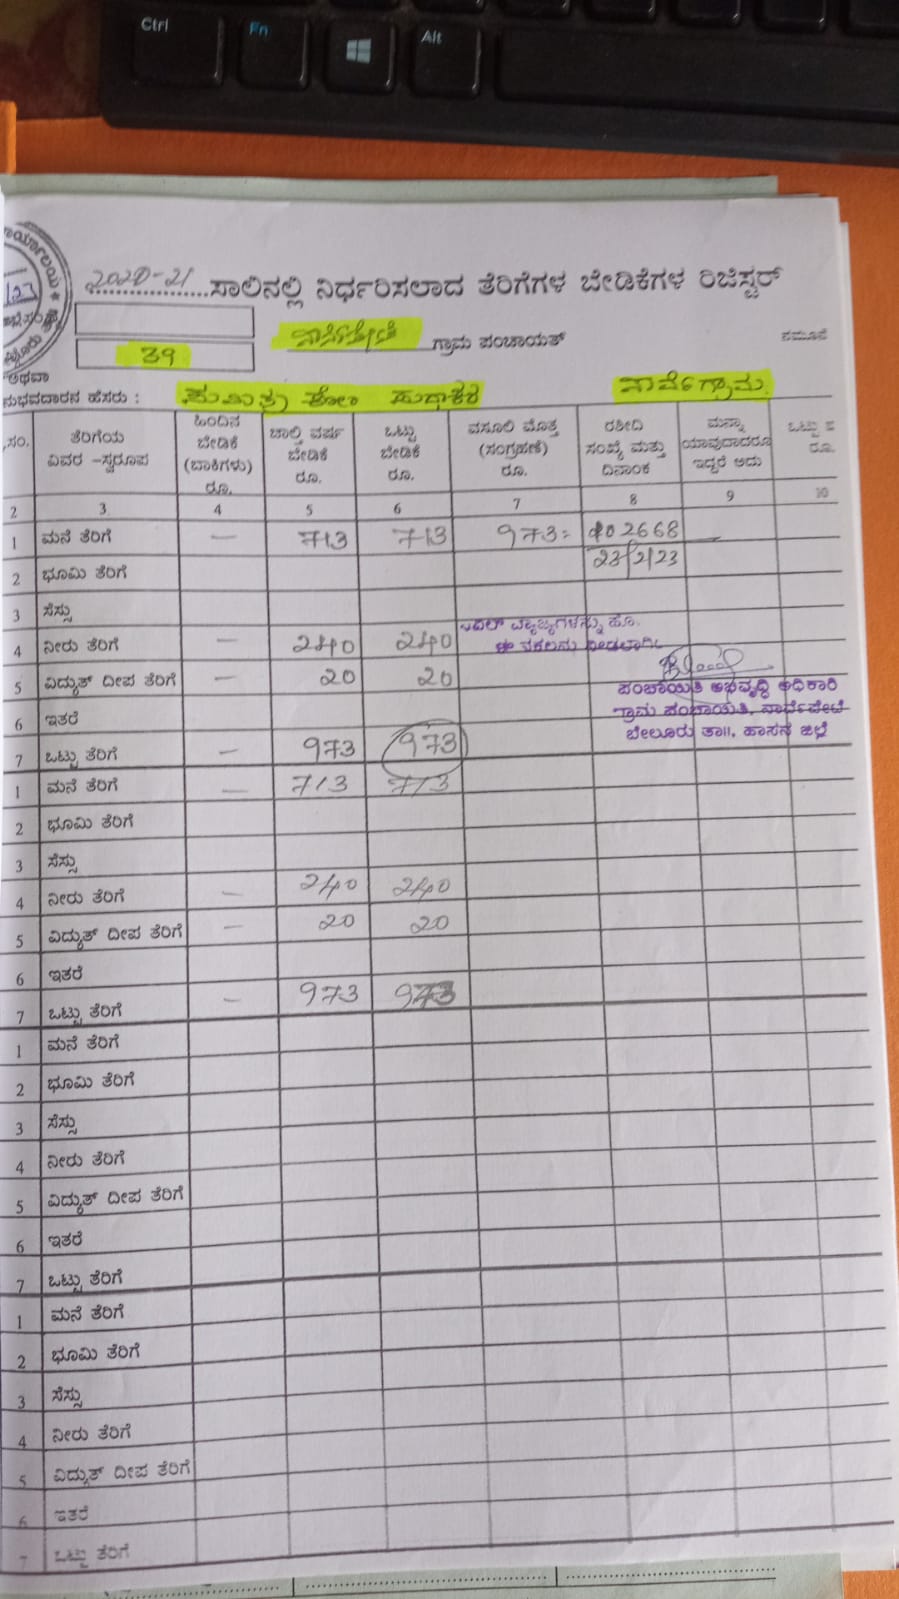 Ctrl Fn Alt
2020-21 ಸಾಲಿನಲ್ಲಿ ನಿರ್ಧರಿಸಲಾದ ತೆರಿಗೆಗಳ ಬೇಡಿಕೆಗಳ ರಿಜಿಸ್ಟರ್
ಗ್ರಾಮ ಪಂಚಾಯತ್ ನಮೂನೆ
39
ಅಥವಾ
ನುಭವದಾರನ ಹೆಸರು : ಸುಮಿತ್ರ ಕೋಂ ಸುಧಾಕರ ನಾರ್ವೆಗ್ರಾಮ
.ಸಂ. ತೆರಿಗೆಯ ವಿವರ -ಸ್ವರೂಪ ಹಿಂದಿನ ಬೇಡಿಕೆ (ಬಾಕಿಗಳು) ರೂ. ಚಾಲ್ತಿ ವರ್ಷ ಬೇಡಿಕೆ ರೂ. ಒಟ್ಟು ಬೇಡಿಕೆ ರೂ. ವಸೂಲಿ ಮೊತ್ತ (ಸಂಗ್ರಹಣೆ) ರೂ. ರಶೀದಿ ಸಂಖ್ಯೆ ಮತ್ತು ದಿನಾಂಕ ಮನ್ನಾ ಯಾವುದಾದರೂ ಇದ್ದರೆ ಅದು ಒಟ್ಟು ರೂ.
2 3 4 5 6 7 8 9 10
1 ಮನೆ ತೆರಿಗೆ — 713 713 973= 2668
2 ಭೂಮಿ ತೆರಿಗೆ 23/2/23
3 ಸೆಸ್ಸು
4 ನೀರು ತೆರಿಗೆ — 240 240
5 ವಿದ್ಯುತ್ ದೀಪ ತೆರಿಗೆ — 20 20
ಪಂಚಾಯಿತಿ ಅಭಿವೃದ್ಧಿ ಅಧಿಕಾರಿ
6 ಇತರೆ
ಗ್ರಾಮ ಪಂಚಾಯಿತಿ, ನಾರ್ವೆಪೇಟೆ
7 ಒಟ್ಟು ತೆರಿಗೆ — 973 973
ಬೇಲೂರು ತಾ||, ಹಾಸನ ಜಿಲ್ಲೆ
1 ಮನೆ ತೆರಿಗೆ — 713 713
2 ಭೂಮಿ ತೆರಿಗೆ
3 ಸೆಸ್ಸು
4 ನೀರು ತೆರಿಗೆ — 240 240
5 ವಿದ್ಯುತ್ ದೀಪ ತೆರಿಗೆ — 20 20
6 ಇತರೆ
7 ಒಟ್ಟು ತೆರಿಗೆ — 973 973
1 ಮನೆ ತೆರಿಗೆ
2 ಭೂಮಿ ತೆರಿಗೆ
3 ಸೆಸ್ಸು
4 ನೀರು ತೆರಿಗೆ
5 ವಿದ್ಯುತ್ ದೀಪ ತೆರಿಗೆ
6 ಇತರೆ
7 ಒಟ್ಟು ತೆರಿಗೆ
1 ಮನೆ ತೆರಿಗೆ
2 ಭೂಮಿ ತೆರಿಗೆ
3 ಸೆಸ್ಸು
4 ನೀರು ತೆರಿಗೆ
5 ವಿದ್ಯುತ್ ದೀಪ ತೆರಿಗೆ
6 ಇತರೆ
7 ಒಟ್ಟು ತೆರಿಗೆ